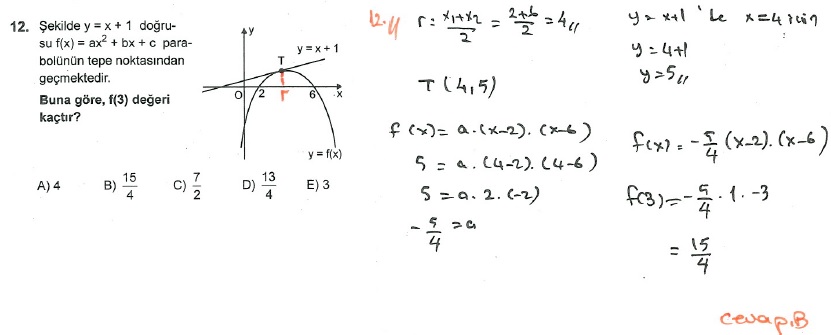 12. Şekilde y = x + 1 doğru-
su f(x) = ax² + bx + c para-
bolünün tepe noktasından
geçmektedir.
Buna göre, f(3) değeri
kaçtır?
y
y = x + 1
T
O 2 r 6 x
y = f(x)
A) 4 B) 15/4 C) 7/2 D) 13/4 E) 3
12.
r = x₁+x₂/2 = 2+6/2 = 4
T(4,5)
f(x) = a.(x-2).(x-6)
5 = a.(4-2).(4-6)
5 = a.2.(-2)
-5/4 = a
y = x+1 'de x=4 için
y = 4+1
y = 5
f(x) = -5/4 (x-2).(x-6)
f(3) = -5/4 . 1 . -3
= 15/4
cevap, B